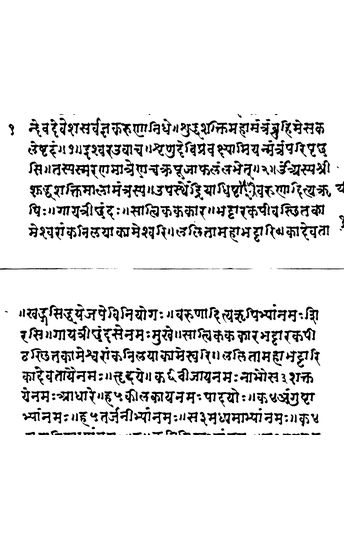 १ देवदेवेशसर्वज्ञकरुणानिधे॥शुद्धशक्तिमहामंत्रंब्रूहिमेसक
लेष्टदं॥१॥ईश्वरउवाच॥शृणुदेविप्रवक्ष्यामियन्मंत्रंपरिपृछ
सि॥तस्यस्मरणमात्रेणचक्रपूजाफलंलभेत्॥२॥ॐअस्यश्री
शुद्धशक्तिमालामंत्रस्य॥उपस्थेंद्रियाधिष्टा वरुणादित्यऋ
षिः॥गायत्रीछंदः॥सात्विकककार॥भट्टारकपीठस्थितका
मेश्वरांकनिलयाकामेश्वरि॥ललितामहाभट्टारिकादेवता
॥खड्गसिद्ध्यर्थेजपेविनियोगः॥वरुणादित्यऋषिभ्यांनमःशि
रसि॥गायत्रीछंदसेनमःमुखे॥सात्विकककारभट्टारकपी
ठस्थितकामेश्वरांकनिलयाकामेश्वरि॥ललितामहाभट्टारि
कादेवतायैनमः॥हृदये॥क बीजायनमःनाभौस३शक्त
येनमःआधारे॥ह५कीलकायनमःपादयोः॥क४अंगुष्टा
भ्यांनमः॥ह५तर्जनीभ्यांनमः॥स३मध्यमाभ्यांनमः॥क४